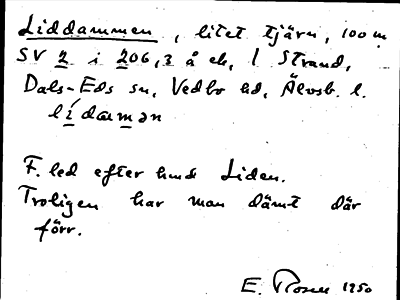 Liddammen, litet tjärn, 100 m
SV 2 i 206,3 å ek, 1 Strand,
Dals-Eds sn, Vedbo hd, Älvsb. l.
lídamən
F. led efter hmd Liden.
Troligen har man dämt där
förr.
E. Rosen 1950